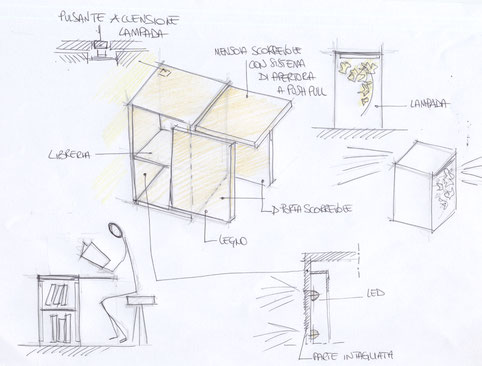 PULSANTE ACCENSIONE
LAMPADA
MENSOLA SCORREVOLE
CON SISTEMA
DI APERTURA
A PUSH PULL
LAMPADA
LIBRERIA
PORTA SCORREVOLE
LEGNO
LED
PARTE INTAGLIATA